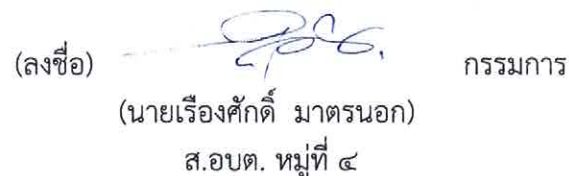 (ลงชื่อ) กรรมการ
(นายเรืองศักดิ์ มาตรนอก)
ส.อบต. หมู่ที่ ๔